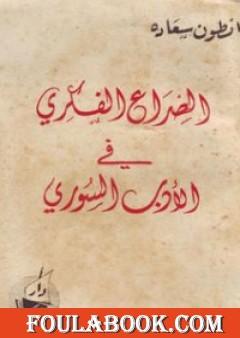 انطون سعاده
الصراع الفكري
في
الأدب السوري
دار
FOULABOOK.COM